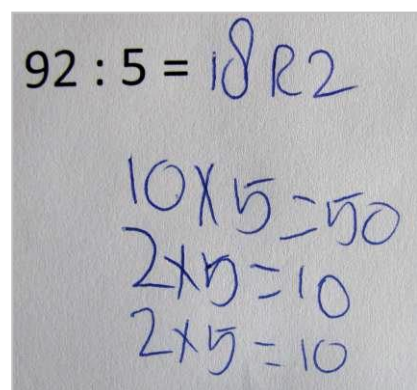 92 : 5 = 18 R2
10 x 5 = 50
2 x 5 = 10
2 x 5 = 10